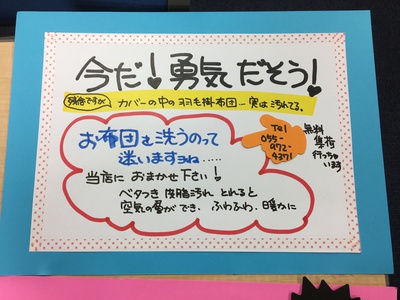 今だ!勇気だそう!
残念ですが カバーの中の羽毛掛布団一実は汚れてる。
お布団を洗うのって
迷いますよね.....
当店に おまかせ下さい!
ベタつき 皮脂汚れ とれると
空気の層ができ、ふわふわ、暖かに
Tel
055-
972-
4371
無料
集荷
行って
います